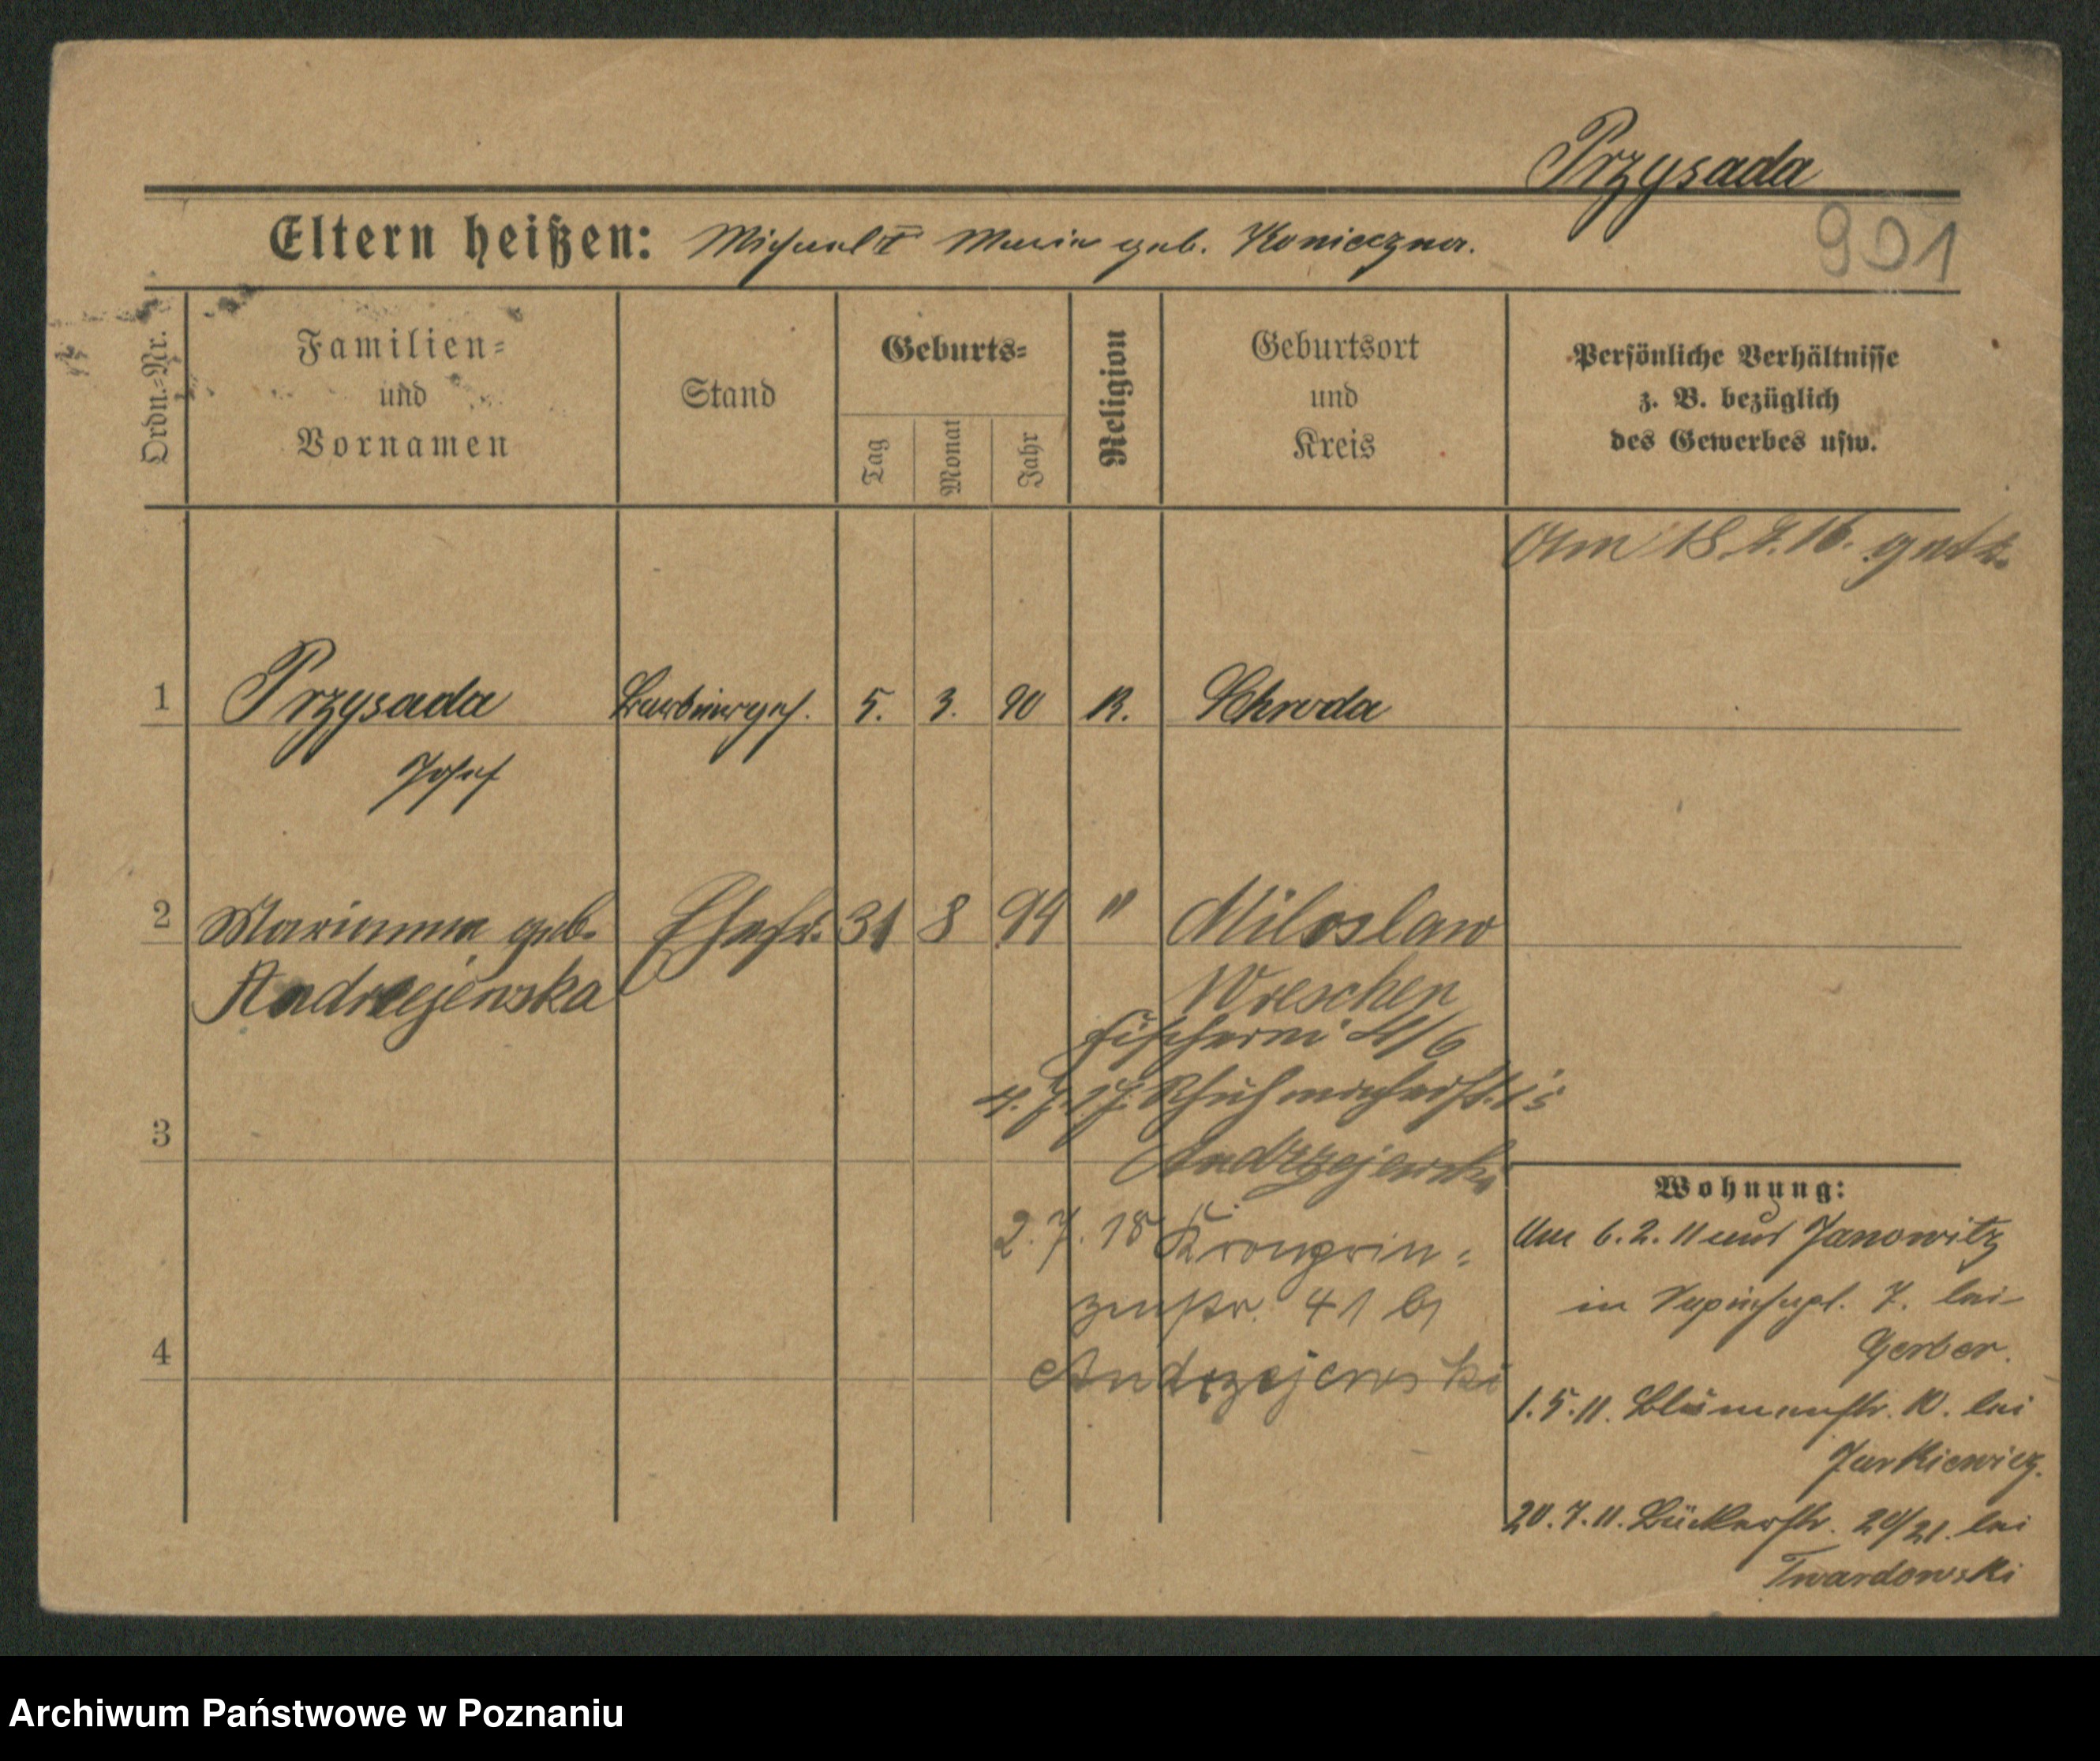 Przysada
901
Eltern heißen: Michael † Maria geb. Konieczna.
Ordn.-Nr.
Familien-
und
Vornamen
Stand
Geburts-
Tag
Monat
Jahr
Religion
Geburtsort
und
Kreis
Persönliche Verhältnisse
z. B. bezüglich
des Gewerbes usw.
Am 18. 16. getr.
1 Przysada Barbiergeh. 5. 3. 90 K. Schroda
Josef
2 Marianna geb. Ehefr. 31 8 94 " Miloslaw
Andrzejewska Wreschen
Fischerei 4/6
4. 7. 17. Schuhmacherstr. 15
3 Andrzejewski
2. 7. 18 Kronprin-
zenstr. 41 b
4 Andrzejewski
Wohnung:
Am 6. 2. 11 aus Janowitz
in Sapiehapl. 7. bei
Gerber.
1. 5. 11. Blumenstr. 10. bei
Jurkiewicz.
20. 7. 11. Bäckerstr. 20/21. bei
Twardowski
Archiwum Państwowe w Poznaniu